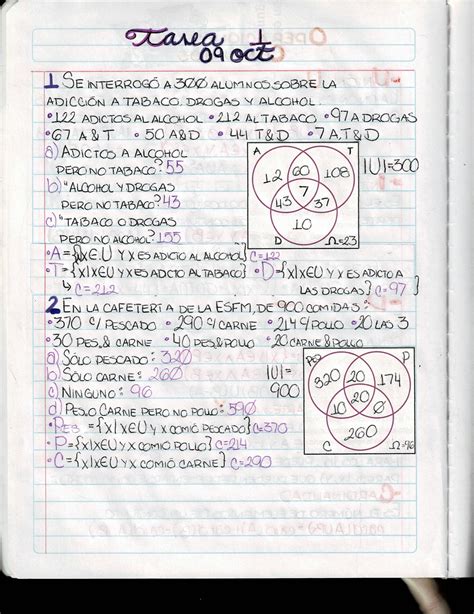 Tarea 1
09 oct
1 SE INTERROGÓ A 300 ALUMNOS SOBRE LA
ADICCIÓN A TABACO, DROGAS Y ALCOHOL.
•122 ADICTOS AL ALCOHOL •212 AL TABACO •97 A DROGAS
•67 A & T •50 A&D •44 T&D •7 A,T&D
a) ADICTOS A ALCOHOL
PERO NO TABACO? 55
b) "ALCOHOL Y DROGAS
PERO NO TABACO? 43
c) "TABACO O DROGAS
PERO NO ALCOHOL? 155
A T
12 60 108
7
43 37
10
D Ω=23
|U|=300
•A={X|X∈U Y X ES ADICTO AL ALCOHOL} C=122
•T={X|X∈U Y X ES ADICTO AL TABACO} •D={X|X∈U Y X ES ADICTO A
↳ C=212 LAS DROGAS} C=97
2 EN LA CAFETERÍA DE LA ESFM, DE 900 COMIDAS:
•370 C/ PESCADO •290 C/ CARNE •214 C/ POLLO •20 LAS 3
•30 PES,& CARNE •40 PES&POLLO •20 CARNE & POLLO
a) SÓLO PESCADO: 320
b) SÓLO CARNE: 260
c) NINGUNO: 96
d) PES,O CARNE PERO NO POLLO: 590
|U|=
900
P
320 20 174
20
10 0
260
C Ω=96
•PES={X|X∈U Y X COMIÓ PESCADO} C=370
•P={X|X∈U Y X COMIÓ POLLO} C=214
•C={X|X∈U Y X COMIÓ CARNE} C=290